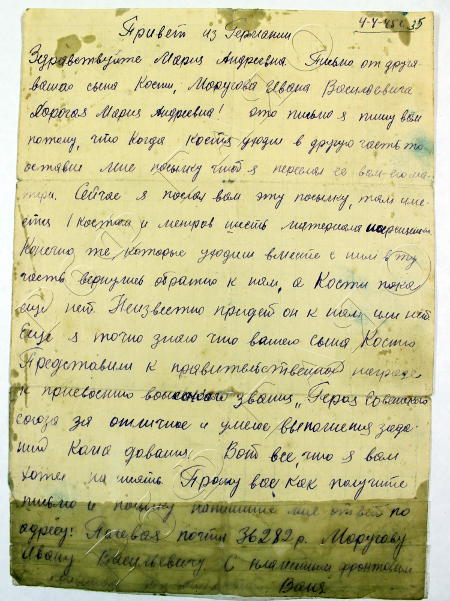 4-4-45г. 35
Привет из Германии
Здравствуйте Мария Андреевна. Письмо от друга
вашего сына Кости, Маругова Ивана Васильевича
Дорогая Мария Андреевна! это письмо я пишу вам
потому, что когда Костя уходил в другую часть то
оставил мне посылку чтоб я переслал ее вам его ма-
тери. Сейчас я послал вам эту посылку, там име-
ется 1 костюм и метров шесть материала
Конечно те которые уходили вместе с ним в ту
часть вернулись обратно к нам, а Кости пока
еще нет. Неизвестно придет он к нам или нет
Еще я точно знаю что вашего сына Костю
Представили к правительственной награде
к присвоению высокого звания „Героя Советского
союза за отличное и умелое выполнения зада-
ний командования. Вот все, что я вам
хотел написать. Прошу вас, как получите
письмо и посылку напишите мне ответ по
адресу: Полевая почта 36282 р. Маругову
Ивану Васильевичу. С пламенным фронтовым
Ваня